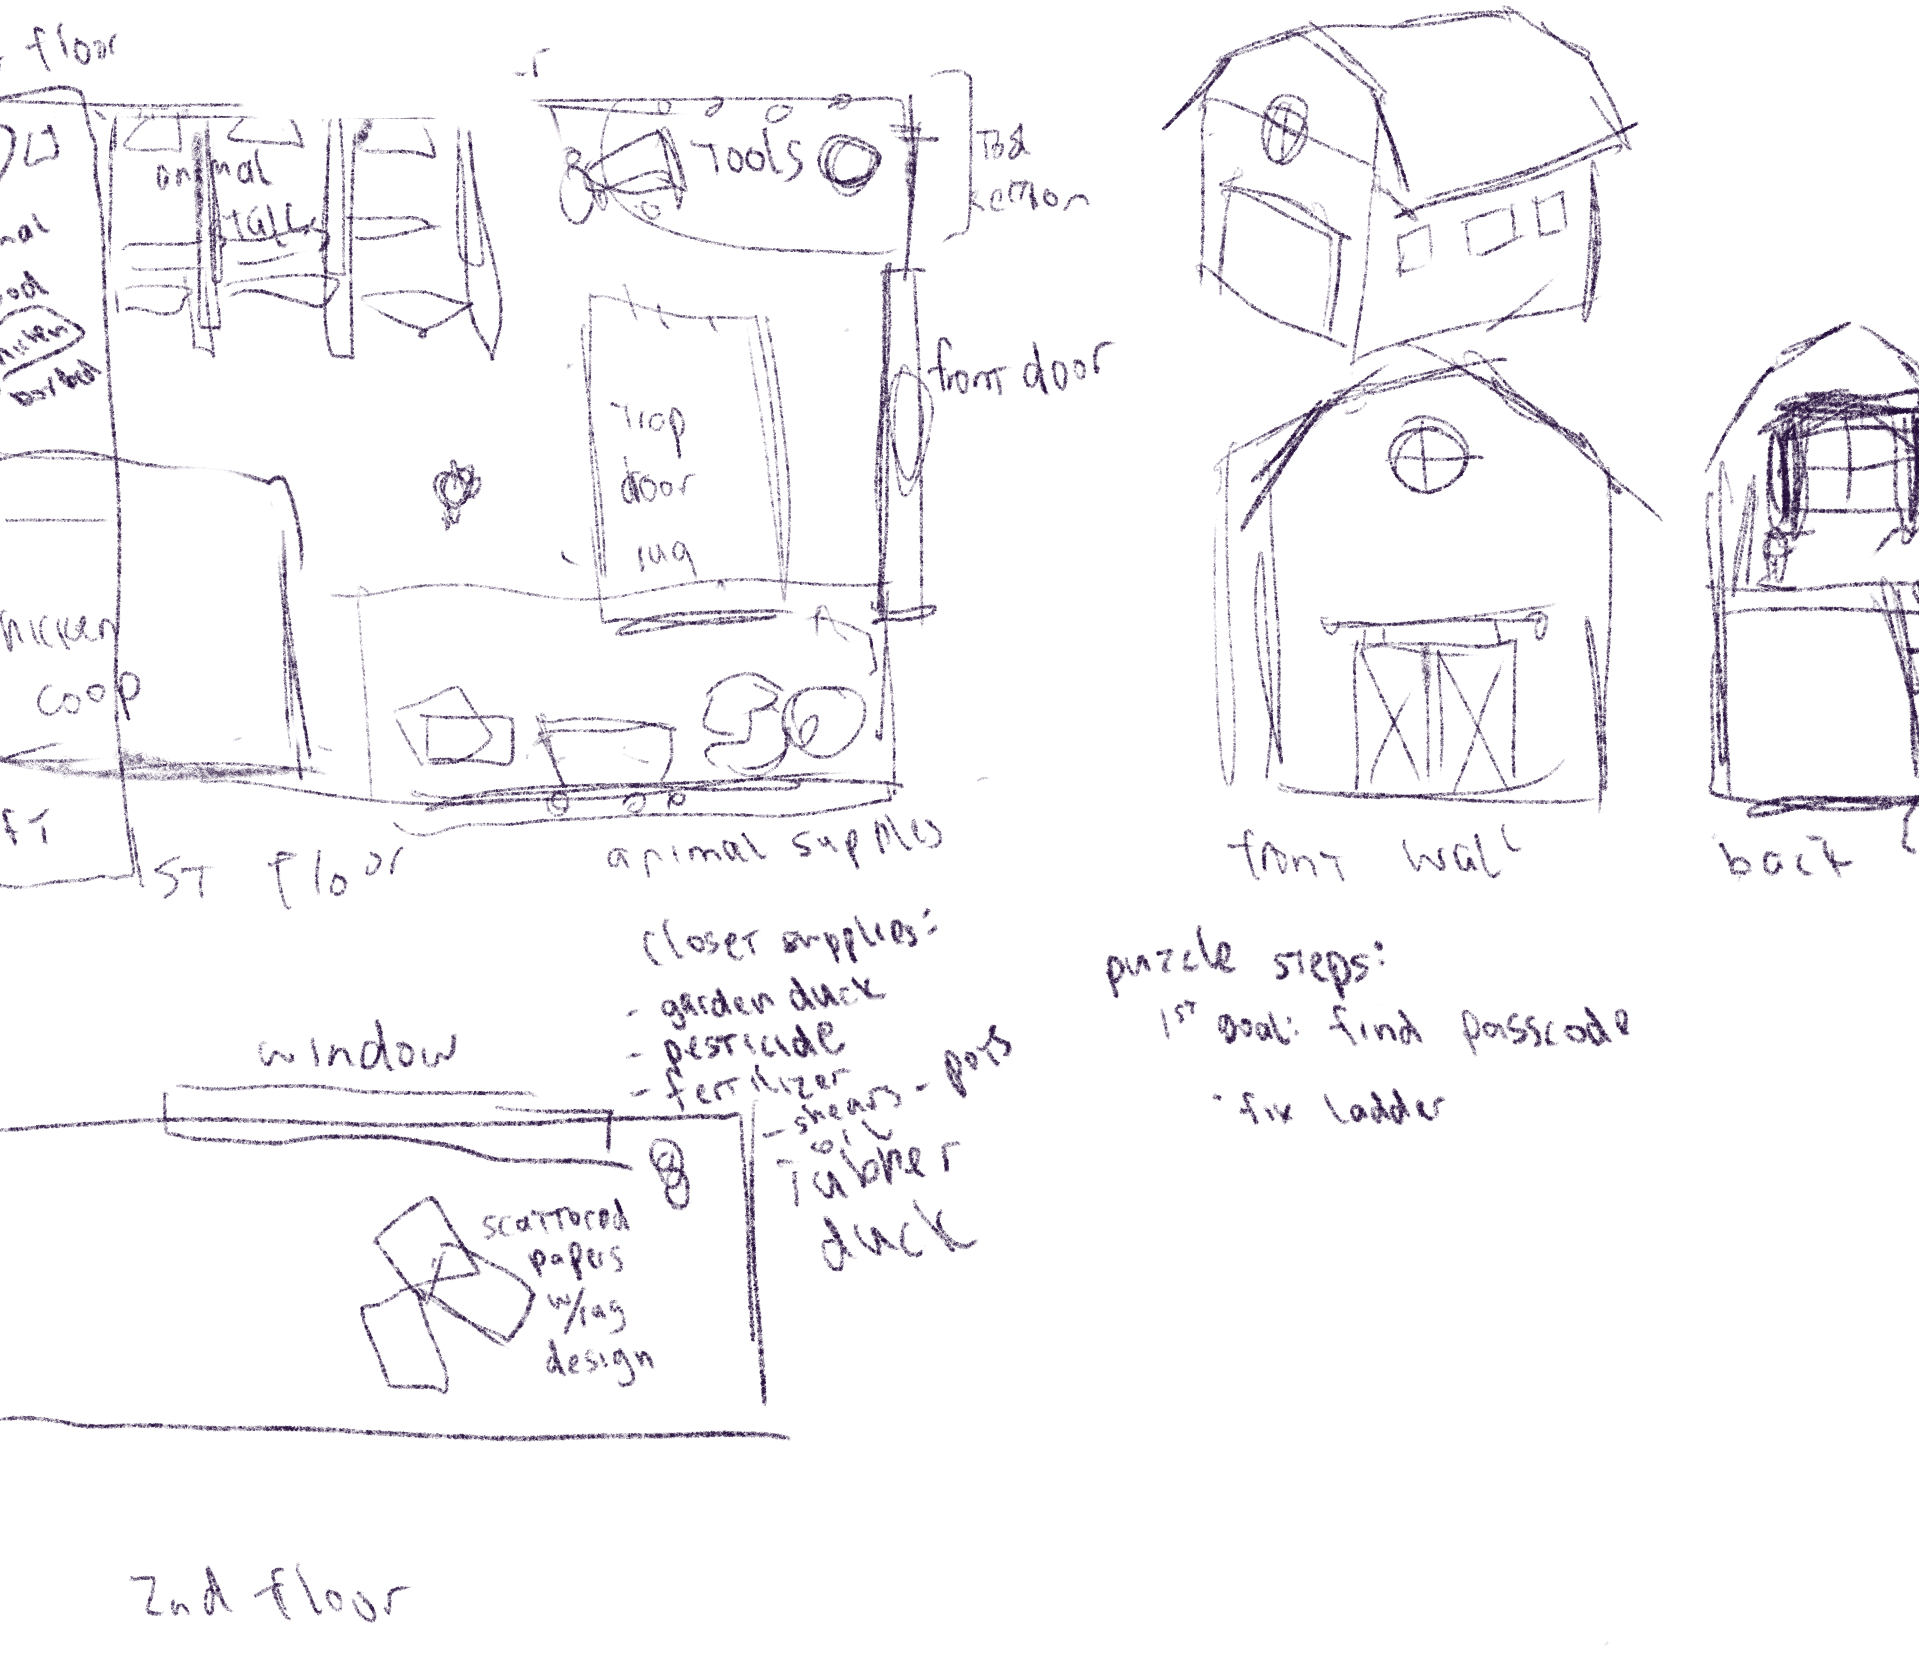 floor
animal
stalls
Tools
Tool
section
front door
Trap
door
rug
chicken
coop
ST floor
animal supplies
closet supplies:
- garden duck
- pesticide
- fertilizer
- shears - pots
- oil
rubber
duck
front wall
back
puzzle steps:
1st Goal: find passcode
- fix ladder
window
scattored
papers
w/rug
design
2nd floor